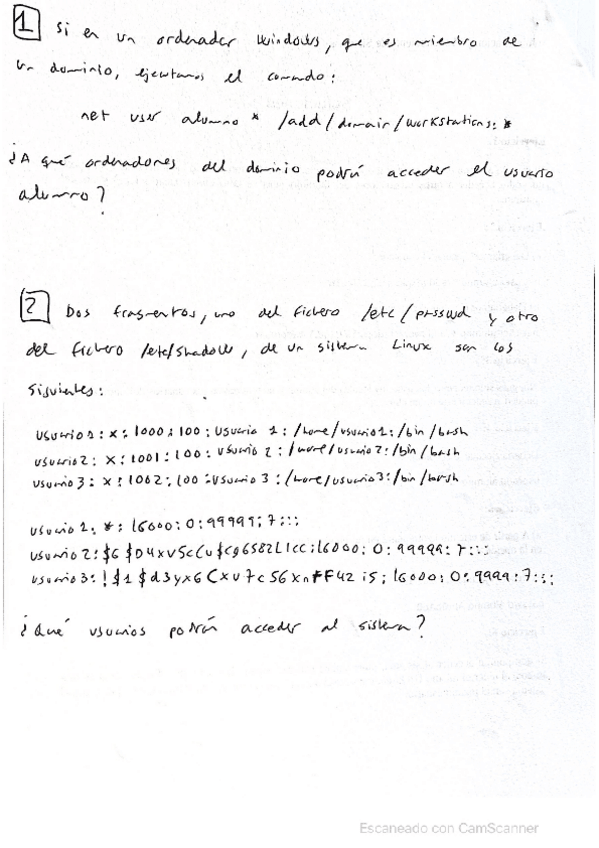 1 Si en un ordenador Windows, que es miembro de
un dominio, ejecutamos el comando:
net user alumno * /add/domain/workstations: *
¿A qué ordenadores del dominio podrá acceder el usuario
alumno?
2 Dos fragmentos, uno del fichero /etc/passwd y otro
del fichero /etc/shadow, de un sistema Linux son los
siguientes:
usuario1: x: 1000: 100: usuario 1: /home/usuario1: /bin/bash
usuario2: x: 1001: 100: usuario 2: /home/usuario2: /bin/bash
usuario3: x: 1002: 100: usuario 3: /home/usuario3: /bin/bash
usuario 1: *: 16000: 0: 99999: 7:::
usuario 2: 16000: 0: 99999: 7:::
usuario 3: 16000: 0: 9999: 7:::
¿Qué usuarios podrán acceder al sistema?
Escaneado con CamScanner